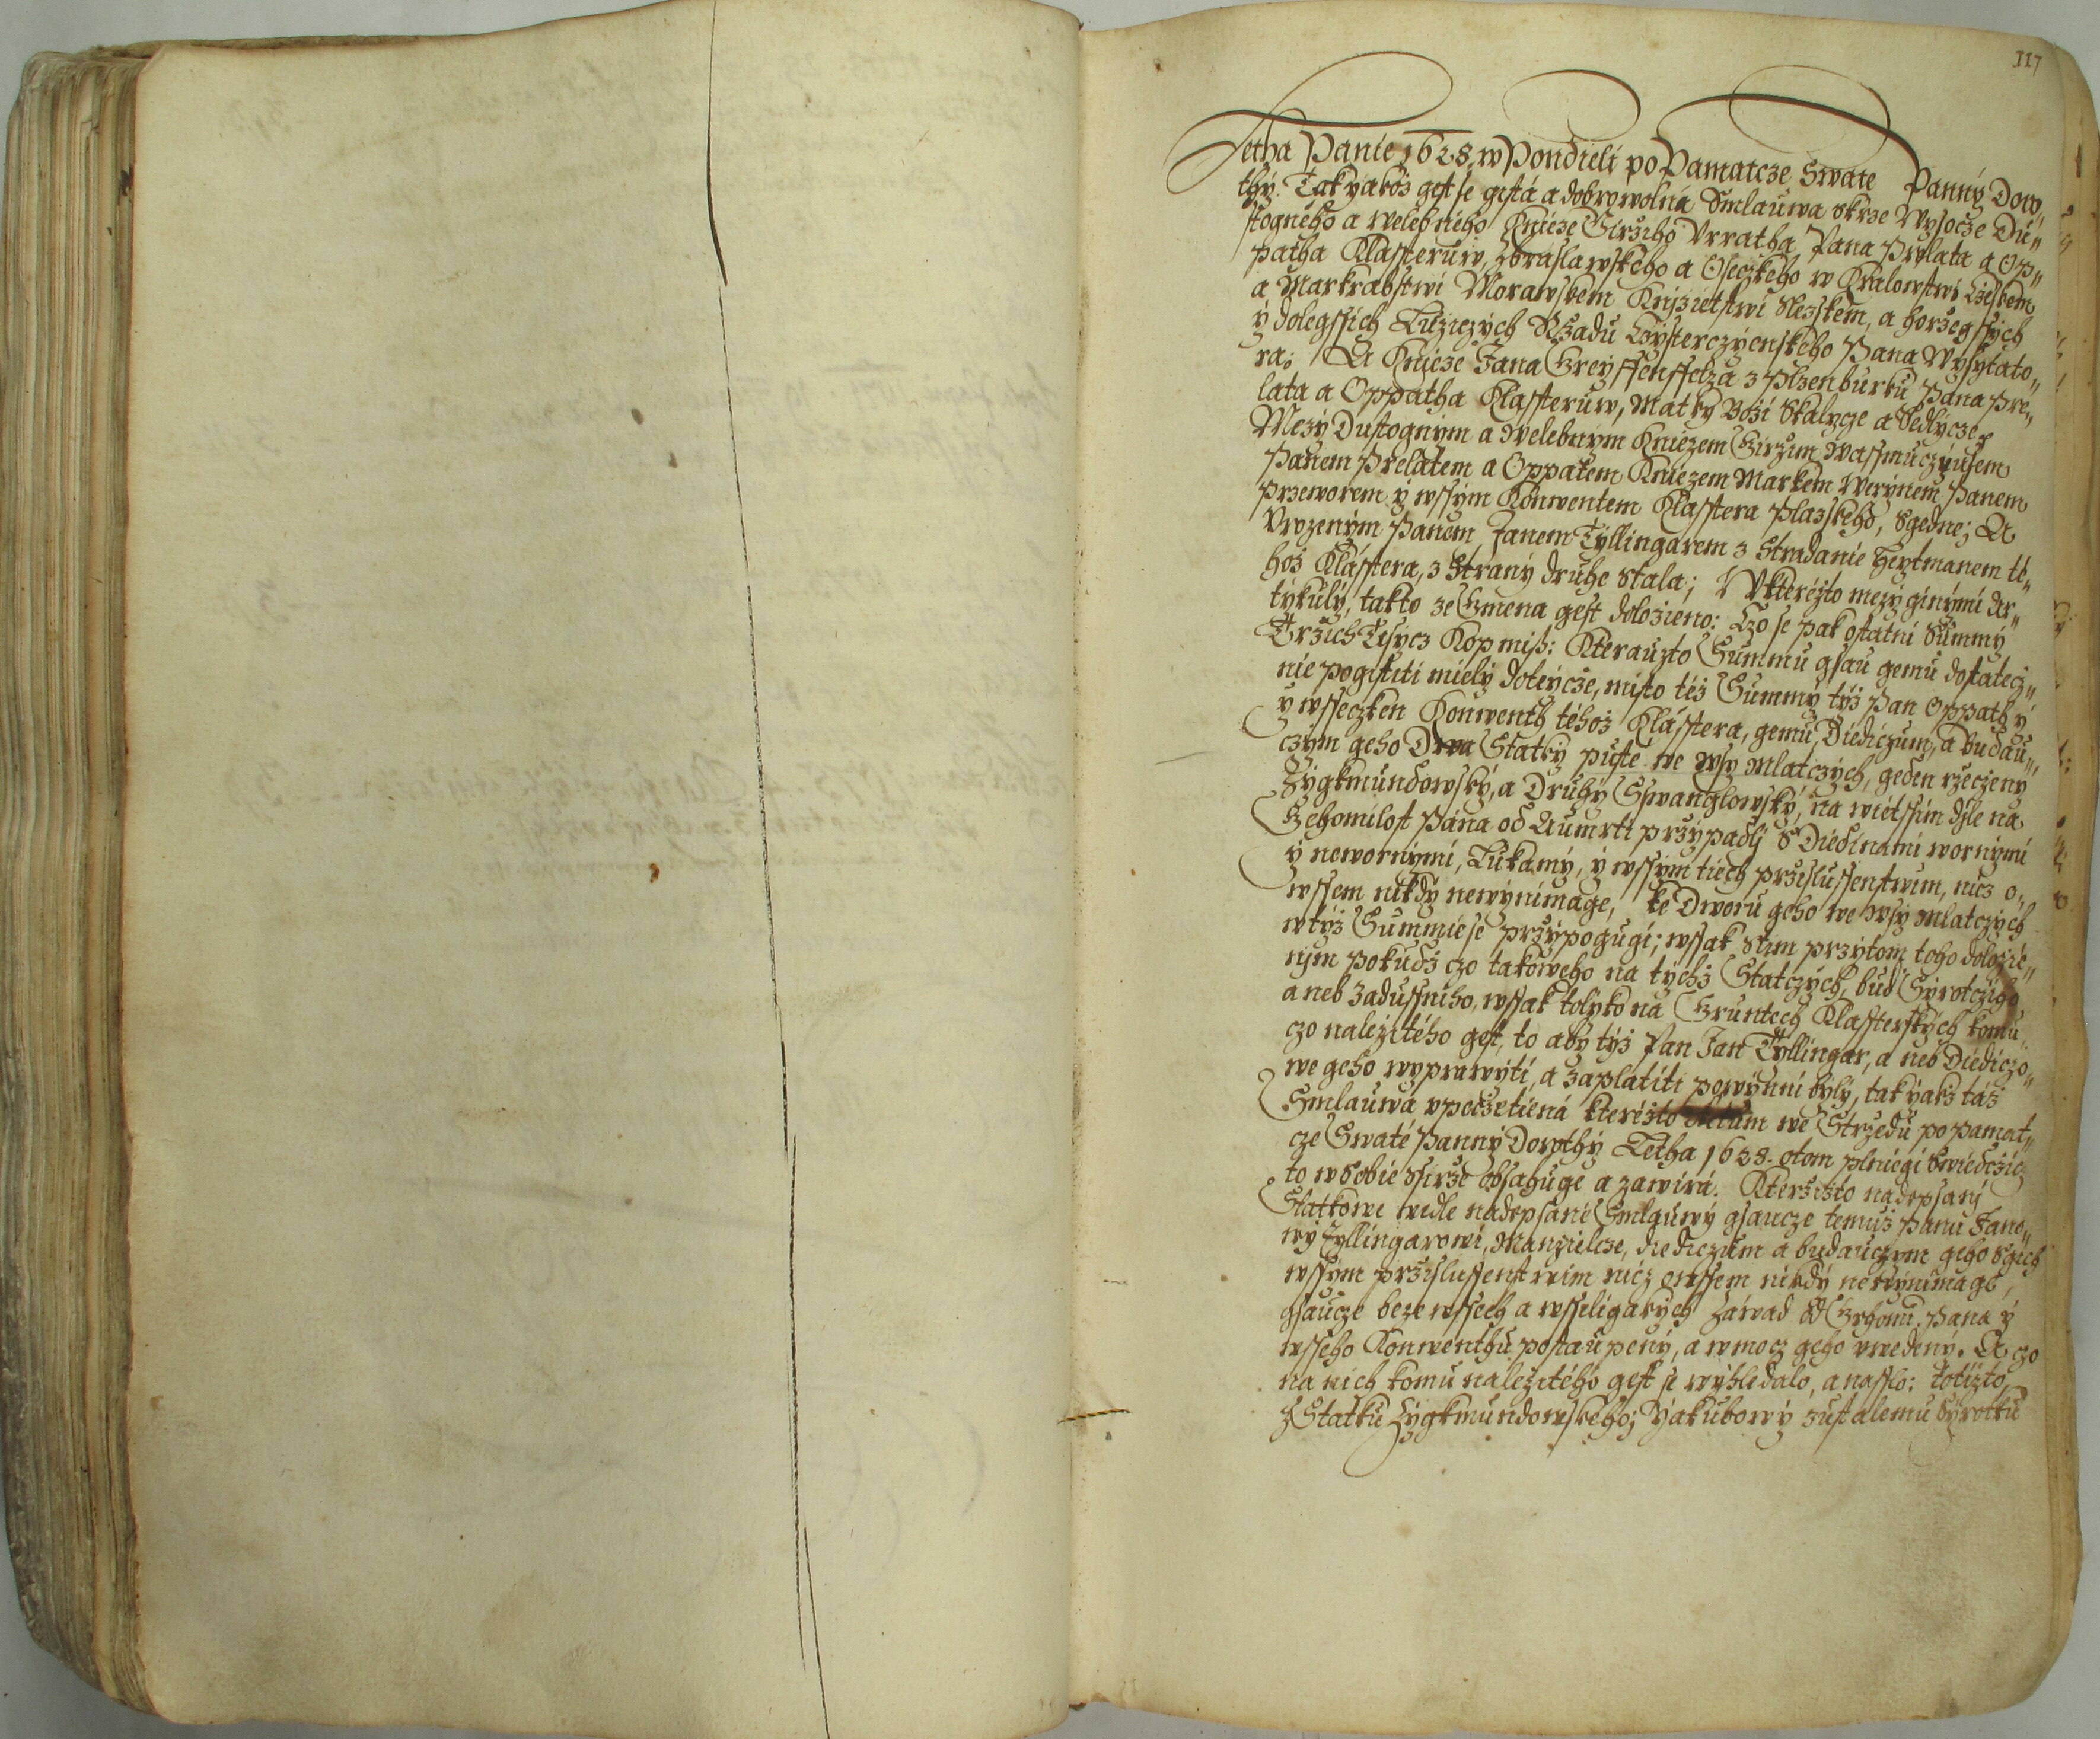 117
Letha Panie 1628 w Pondieli po Pamatcze Swate Panny Doro„
thy. Tak yakoz gest se gista a dobrowolna Smlauwa skrze Wysocze Du„
stogneho a welebneho Knieze Girziho Vrratha Pana Prelata a Op„
patha Klassteruw, Zbraslawskeho a Oseczkeho w Kralowstwi Czeskem
a Markrabstwi Morawskem Knizietstwi Slezskem, a horzegssych
y dolegssich Luziczych Rzadu Czysterczyenskeho Pana Wysytato„
ra; A Knieze Jana Greyffenffelza z Plzenburku Pana Pre„
lata a Oppatha Klassteruw, Matky Bozi Skalycze a Sedlycze,
Mezy Dustognym a Welebnym Kniezem Girzim Wassmuczyusem
Panem Prelatem a Oppatem Kniezem Markem Werynem Panem
Przeworem y wssym Konwentem Klasstera Plazskeho, Sgedne; A
Vrozenym Panem Janem Tyllingarem z Stradanie Heytmanem té„
hoz Klásstera, z Strany druhe stala; W kterézto mezy ginymi Ar„
tykuly, takto ze Gmena gest dolozieno: Czo se pak ostatni Summy
Trzich Tisycz Kop miss: Kterauzto Summu gsau gemu dostatecz„
nie pogistiti miely doteycze, misto téz Summy tyz Pan Oppath y
y wsseczken Konwenth téhoz Klásstera, gemu, Diediczum, a Budau„
czym geho Dwa Statky puste we Wsy Mlatczych, geden rzeczeny
Zygkmundowsky, a Druhy Sswanglowsky, na wietssim dyle na
Gehomilost Pana od Aumrti przypadly S Diedinami wornymi
y newornymi, Lukamy, y wssym tiech przislussenstwim, nicz o„
wssem nikdy newynimage, ke Dworu geho we Wsy Mlatczych
w tyz Summie se przypogugi; wssak stim przytom toho dolozie„
nym pokudz czo takoweho na tychz Statczych, bud Syrotcziho
aneb Zadussniho, wssak tolyko na Gruntech Klassterskych komu
czo nalezitého gest, to aby tyz Pan Jan Tyllingar, a neb Diediczo„
we geho wyprawyti, a zaplatiti powynni byly, tak yakz táz
Smlauwa vpeczetiena kterézto Datum we Strzedu po pamat„
cze Swaté Panny Dorothy Letha 1628. otom plniegi Swiedczicz
to w Sobie ssirze obsahuge a zawirá. Kterzizto nadepsany
Statkowe wedle nadepsane Smlauwy gsaucze temuz Panu Jano„
wy Tyllingarowi, Manzielcze, diediczum a budauczym geho Sgich
wssym przislussenstwim nicz owssem nikdy newynimage,
gsaucze beze wssech a wsselligakych Záwad od Gehomi: Pana y
wsseho Konwenthu postaupeny, a wmocz geho vwedeny. A czo
na nich komu nalezitého gest se wyhledalo, a nasslo: totizto,
Z Statku Zygkmundowskeho; Yakubowy zustalemu Syrotku